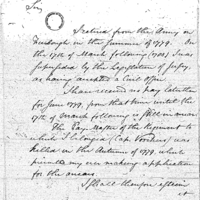 Sir,
I retired from the Army in
in the Summer of 1779. On
the 17th of March following (1780) I was
by the Legislature of Jersey,
as having accepted a Civil office.
I have received no pay later than
for June 1779, from that time until the
17th of March following is still in arrear.
The Pay Master of the Regiment to
which I belonged (Cap. Voorhees) was
killed in the Autumn of 1779, which
prevented my ever making application
for the arrears.
I shall therefore esteem
it